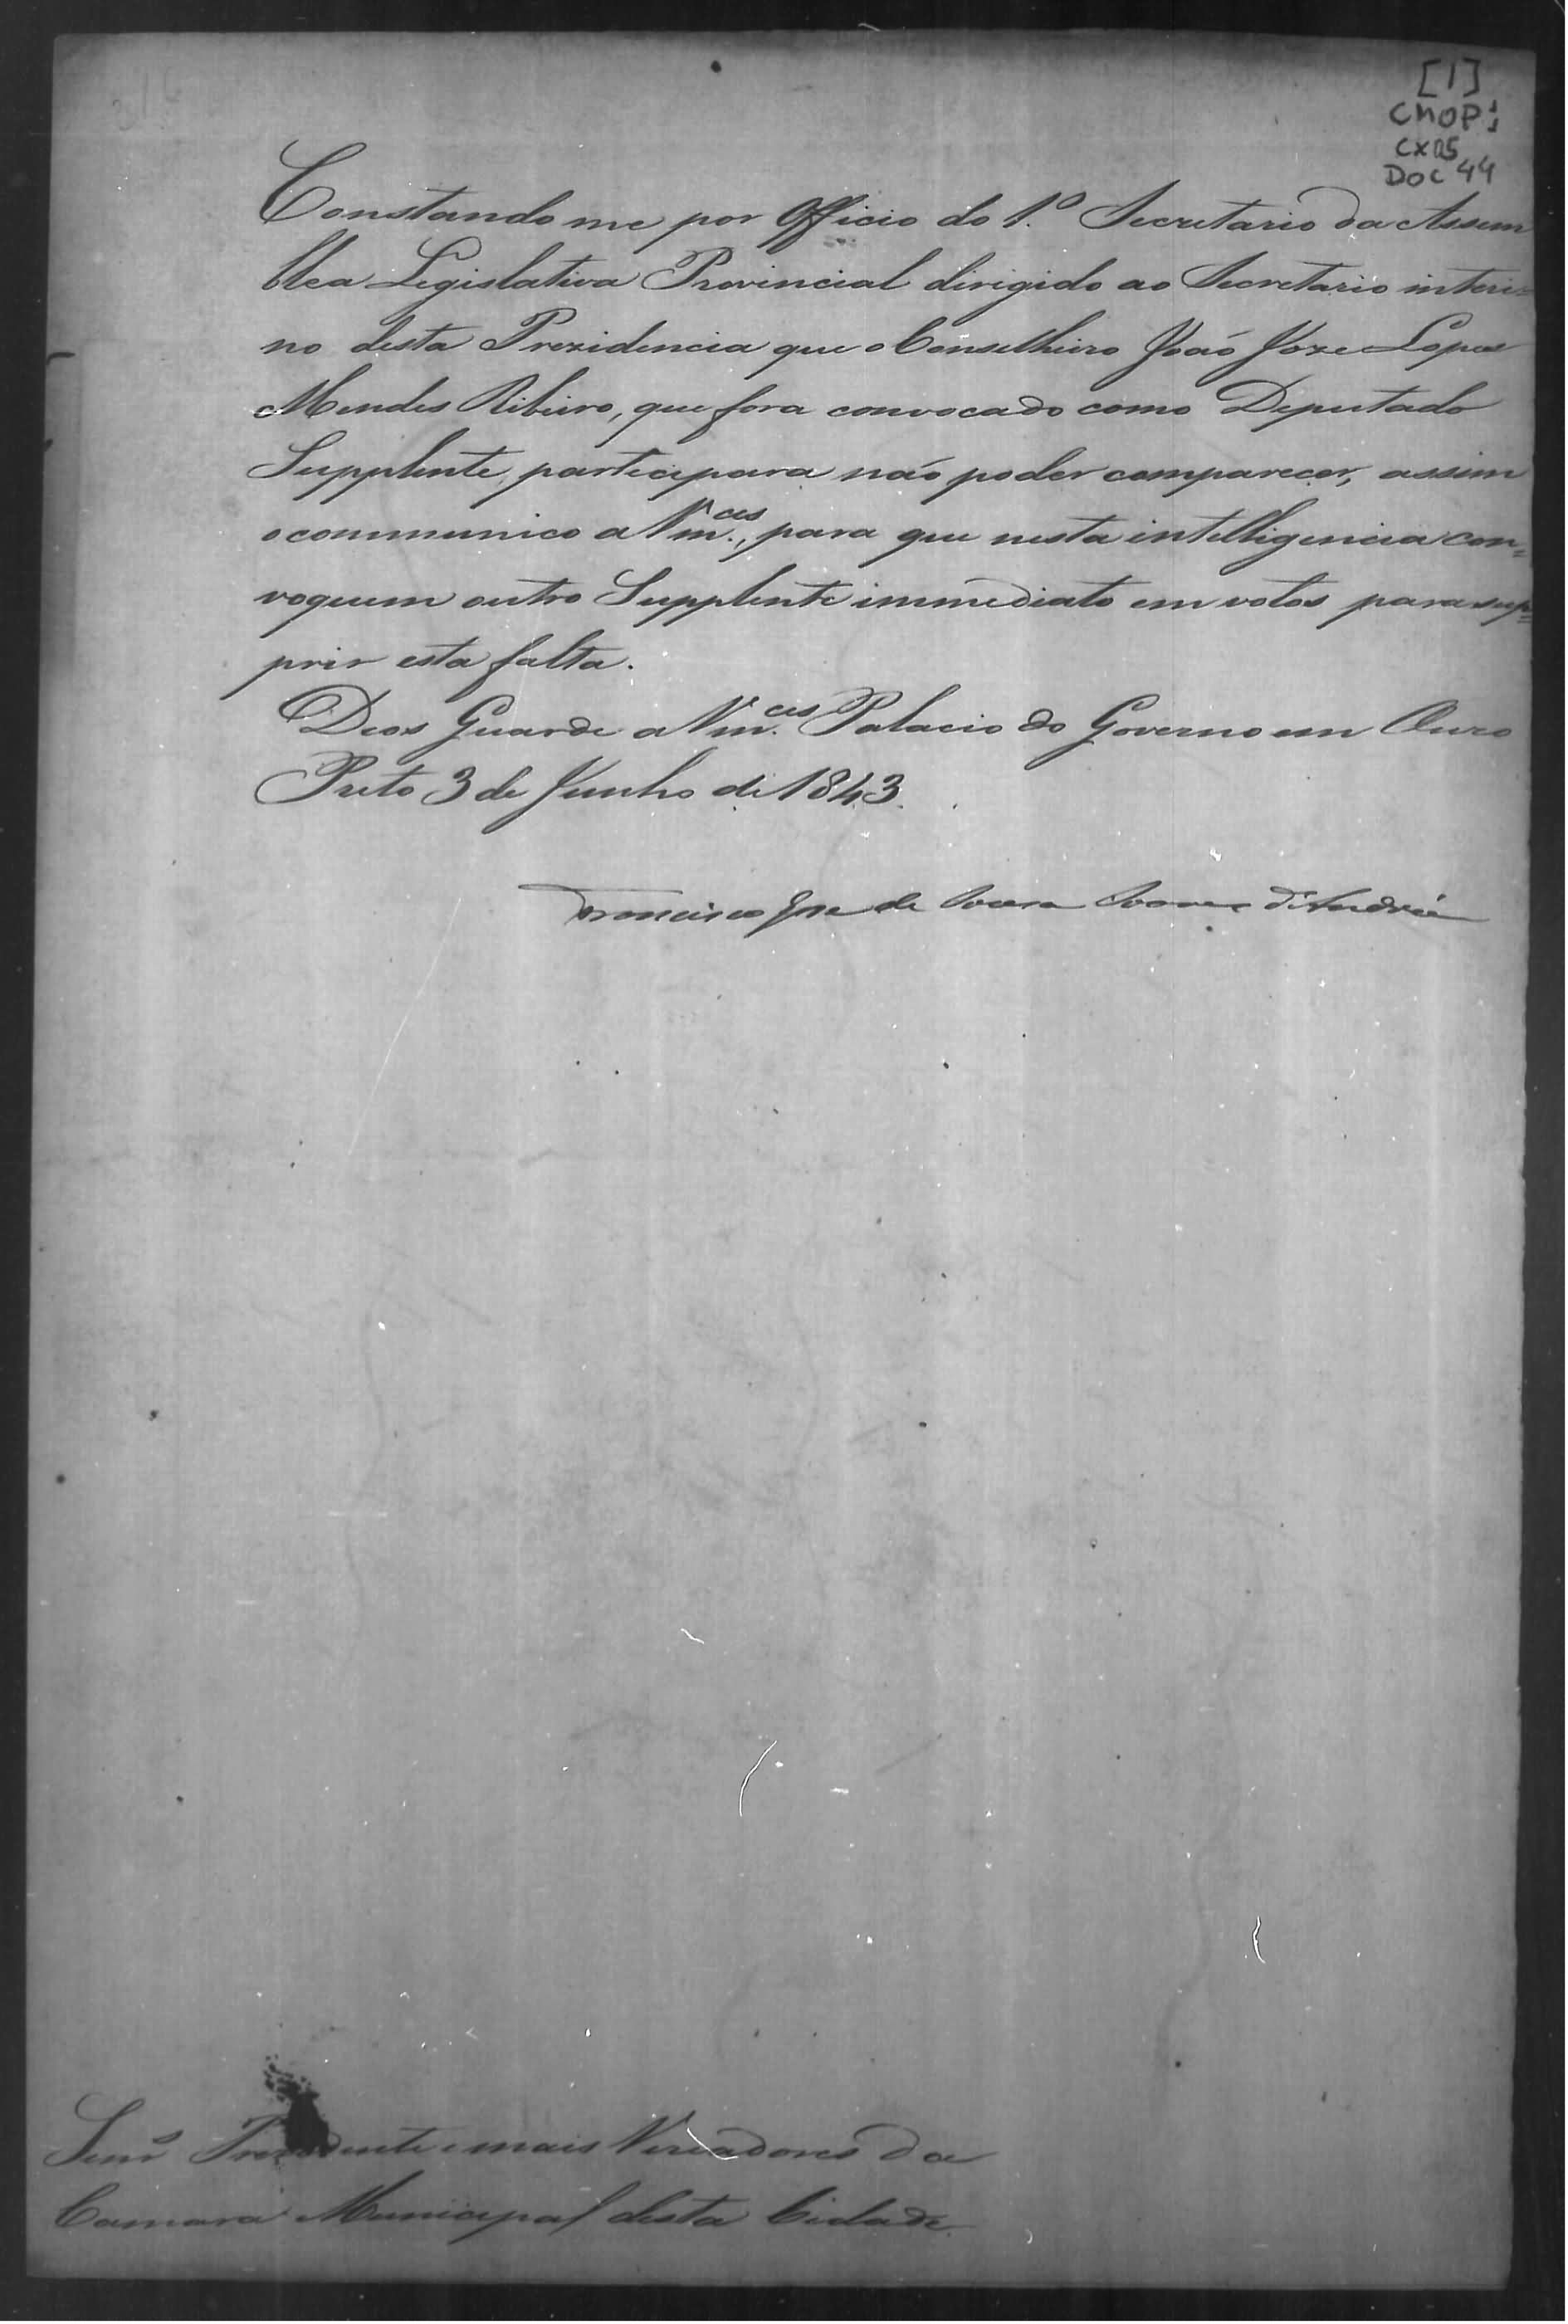 [1]
CMOP:
CX 05
DOC 44
Constando me por Officio do 1.º Secretario da Assem
blea Legislativa Provincial dirigido ao Secretario interi=
no desta Prezidencia que o Conselheiro João Joze Lopes
Mendes Ribeiro, que fora convocado como Deputado
Supplente, participara não poder comparecer, assim
o communico a Vm.ces, para que nesta intelligencia con=
voquem outro Supplente immediato em votos para sup=
prir esta falta.
Deos Guarde a Vm.ces Palacio do Governo em Ouro
Preto 3 de Junho de 1843.
Francisco Jose de Souza Soares d'Andréa
Senrs Prezidente e mais Vereadores da
Camara Municipal desta Cidade.